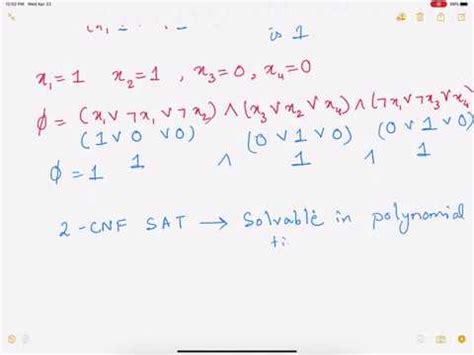 12:02 PM Wed Apr 22
is 1
x₁=1 x₂=1 , x₃=0, x₄=0
ϕ = (x₁∨¬x₁∨¬x₂) ∧ (x₃∨x₂∨x₄) ∧ (¬x₁∨¬x₃∨x₄
(1∨0∨0) (0∨1∨0) (0∨1∨0)
ϕ = 1 1 ∧ 1 ∧ 1
2-CNF SAT → Solvable in polynomial
ti